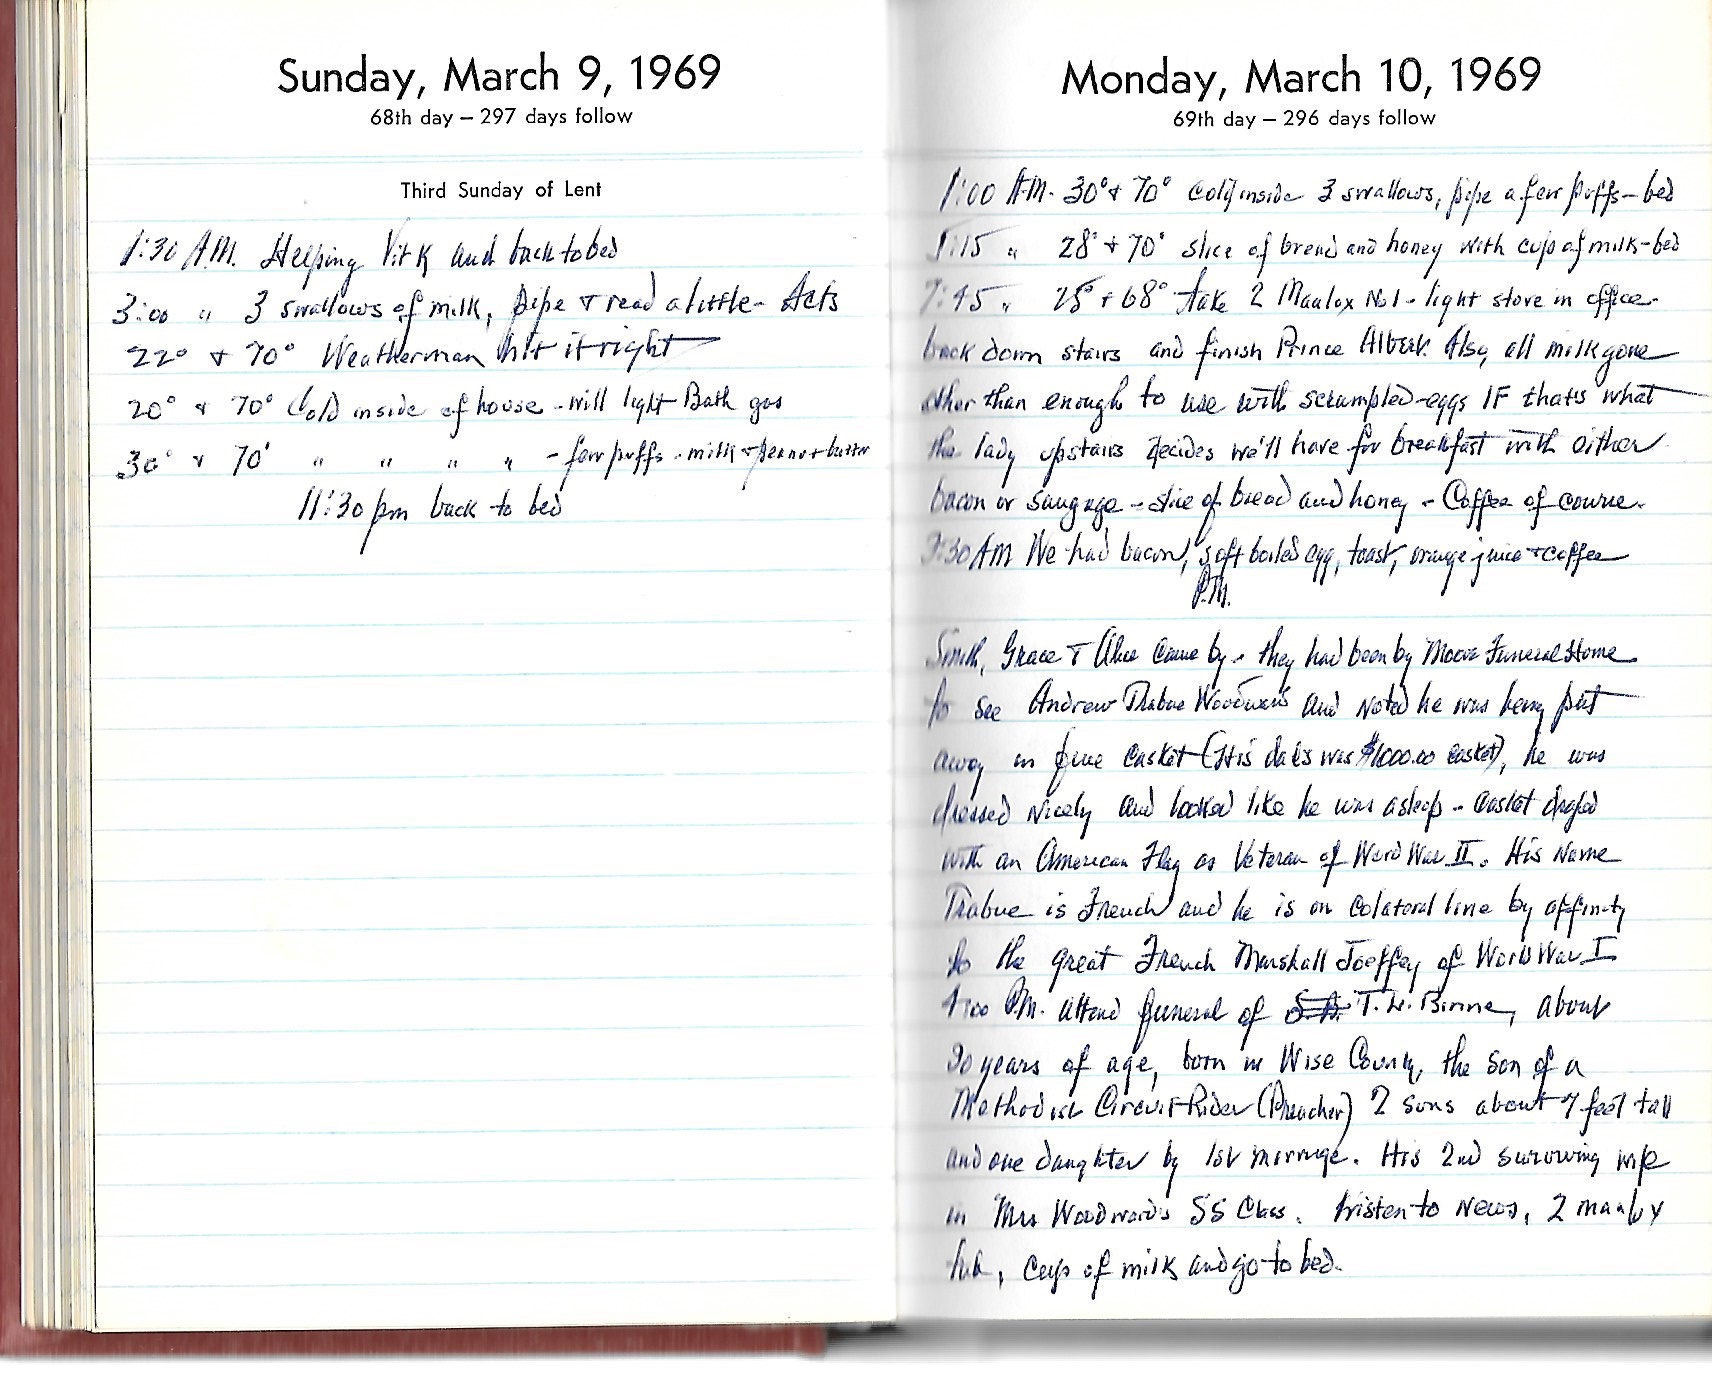 Sunday, March 9, 1969
68th day — 297 days follow
Third Sunday of Lent
1:30 A.M. Helping Vit K and back to bed
3:00 " 3 swallows of milk, pipe & read a little - Acts
22° & 70° Weatherman hit it right
20° & 70° Cold inside of house - will light Bath gas
30° & 70° " " " " - few puffs - milk & peanut butter
11:30 pm back to bed
Monday, March 10, 1969
69th day — 296 days follow
1:00 A.M. 30° & 70° Cold inside 3 swallows, pipe a few puffs - bed
" 28° & 70° slice of bread and honey with cup of milk - bed
7:45 " 25° & 68° take 2 Maalox No 1 - light stove in office -
back down stairs and finish Prince Albert. Also, all milk gone
other than enough to use with scrampled-eggs IF thats what
the lady upstairs decides we'll have for breakfast with either
bacon or saugage - slice of bread and honey - Coffee of course.
9:30 AM We had bacon, soft boiled egg, toast, orange juice & coffee
P.M.
Smith, Grace & Alice came by - they had been by Moore Funeral Home
to see Andrew Trabue Woodward and noted he was being put
away in fine casket (His dad's was $1000.00 casket), he was
dressed nicely and looked like he was asleep - casket draped
with an American Flag as Veteran of Word War II. His Name
Trabue is French and he is on colateral line by affinity
to the great French Marshall Joeffey of World War I
4:00 P.M. attend funeral of T. L. about
90 years of age, born in Wise County, the son of a
Methodist Circuit-Rider (Preacher) 2 sons about 7 feet tall
and one daughter by 1st marriage. His 2nd surviving wife
in Mrs Woodward's SS Class. Listen to News, 2 maalox
tab, cup of milk and go to bed.